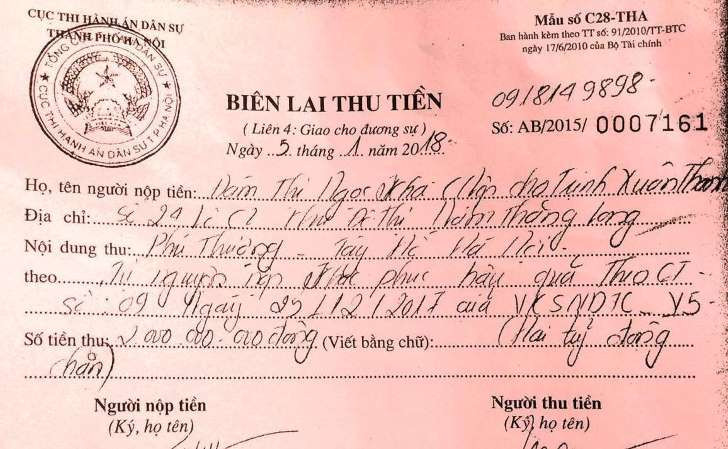 CỤC THI HÀNH ÁN DÂN SỰ
THÀNH PHỐ HÀ NỘI
Mẫu số C28-THA
Ban hành kèm theo TT số: 91/2010/TT-BTC
ngày 17/6/2010 của Bộ Tài chính
CỤC THI HÀNH ÁN DÂN SỰ T.P HÀ NỘI
BIÊN LAI THU TIỀN
0918149898
(Liên 4: Giao cho đương sự)
Số: AB/2015/ 0007161
Ngày 5 tháng 1 năm 2018
Họ, tên người nộp tiền: Đàm Thị Ngọc Kha (Nộp cho Trịnh Xuân Thanh
Địa chỉ: Số 24 Khu Đô Thị Nam Thăng Long
Nội dung thu: Phú Thượng - Tây Hồ - Hà Nội -
theo Tự nguyện nộp khắc phục hậu quả Theo CT
số: 09 Ngày 25/12/2017 của VKSNDTC - V5
Số tiền thu: 2.000.000.000 đồng (Viết bằng chữ): (Hai tỷ đồng
chẵn)
Người nộp tiền
Người thu tiền
(Ký, họ tên)
(Ký, họ tên)